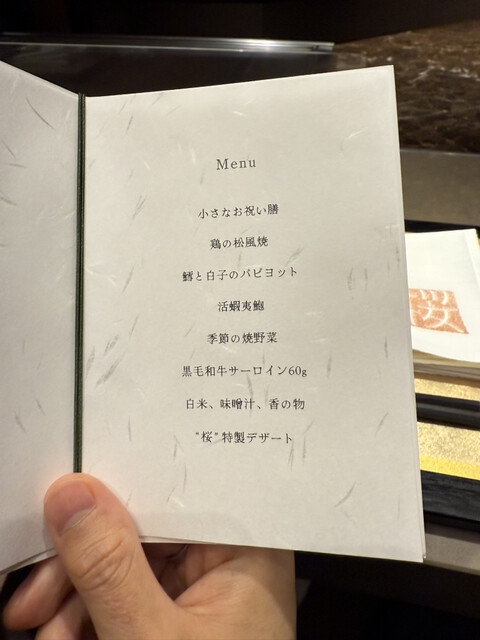 Menu
小さなお祝い膳
鶏の松風焼
鱈と白子のパピヨット
活蝦夷鮑
季節の焼野菜
黒毛和牛サーロイン60g
白米、味噌汁、香の物
“桜”特製デザート